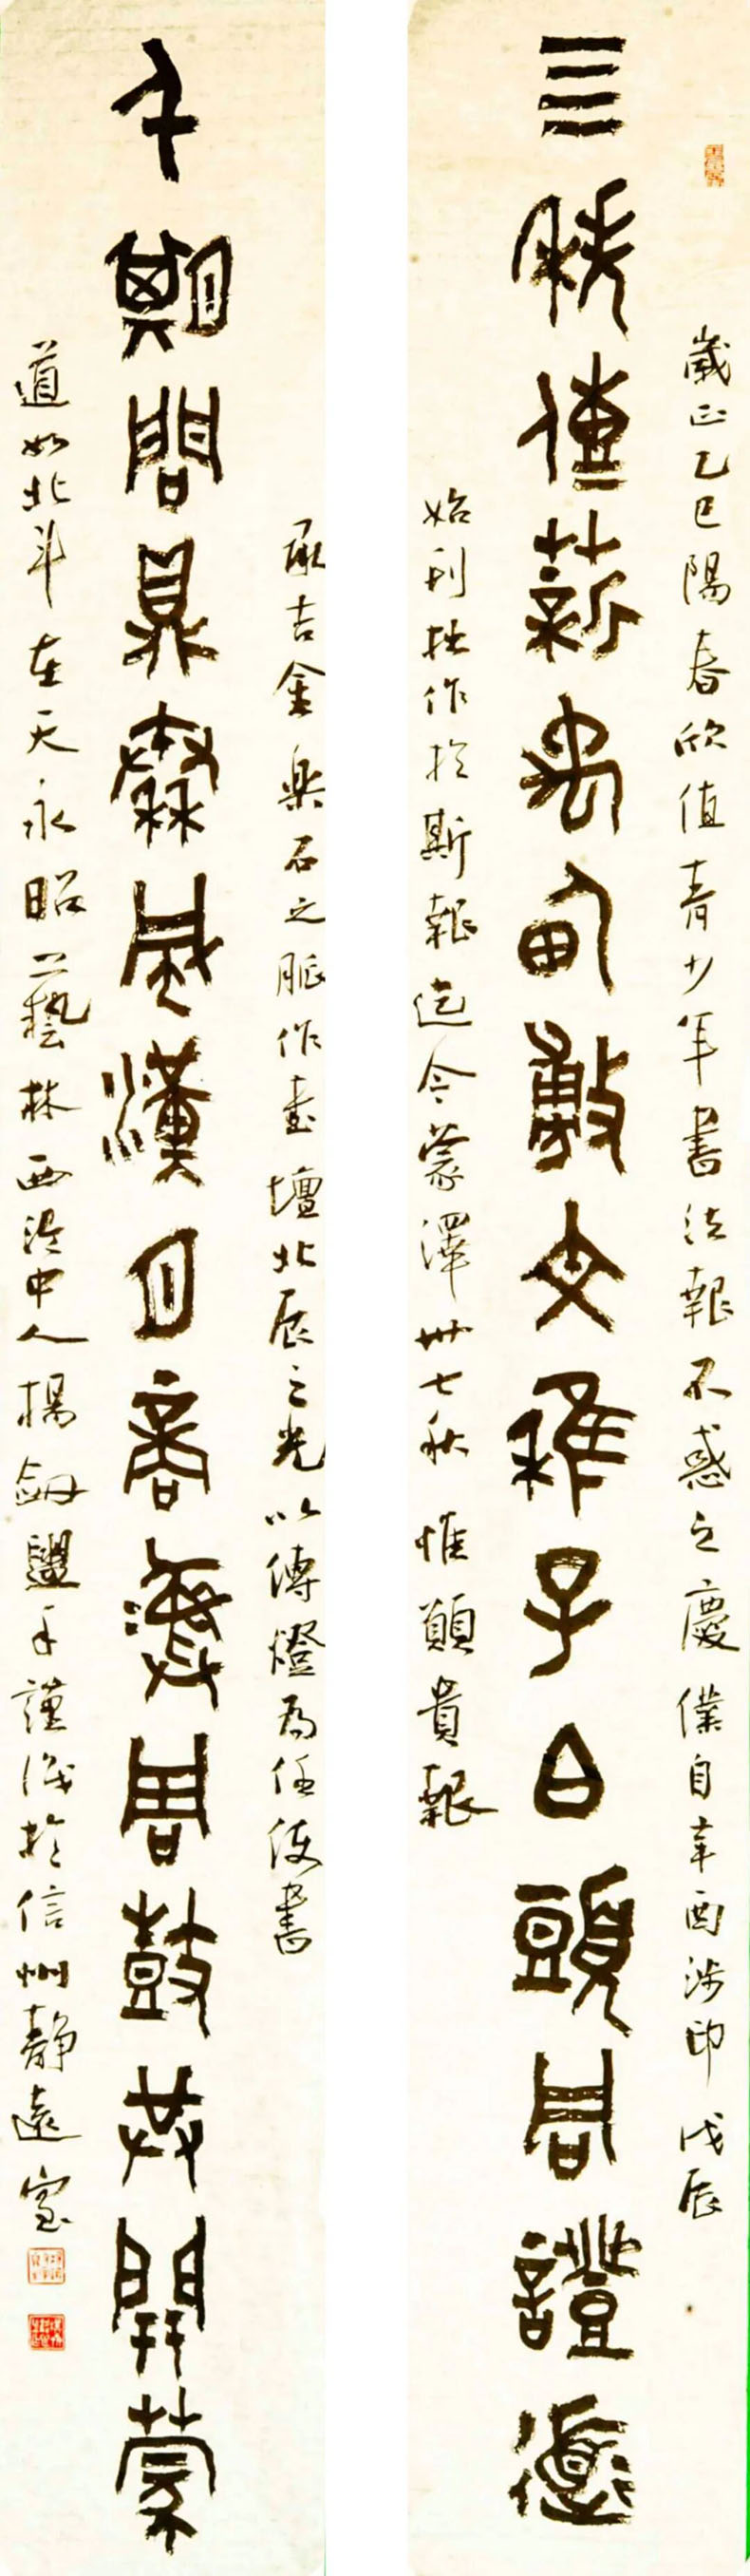 歲正乙巳陽春欣值青少年書法報不惑之慶僕自辛酉涉印戊辰
亖秩傳薪禹甸敷文稚子白頭同證道
始刊拙作於斯報迄今蒙澤卅七秋惟願貴報
承吉金樂石之脈作書壇北辰之光以傳燈為任使書
千期問鼎秦風漢月商彝周鼓共開蒙
道如北斗在天永昭藝林西泠中人楊劍盥手謹識於信州靜遠室